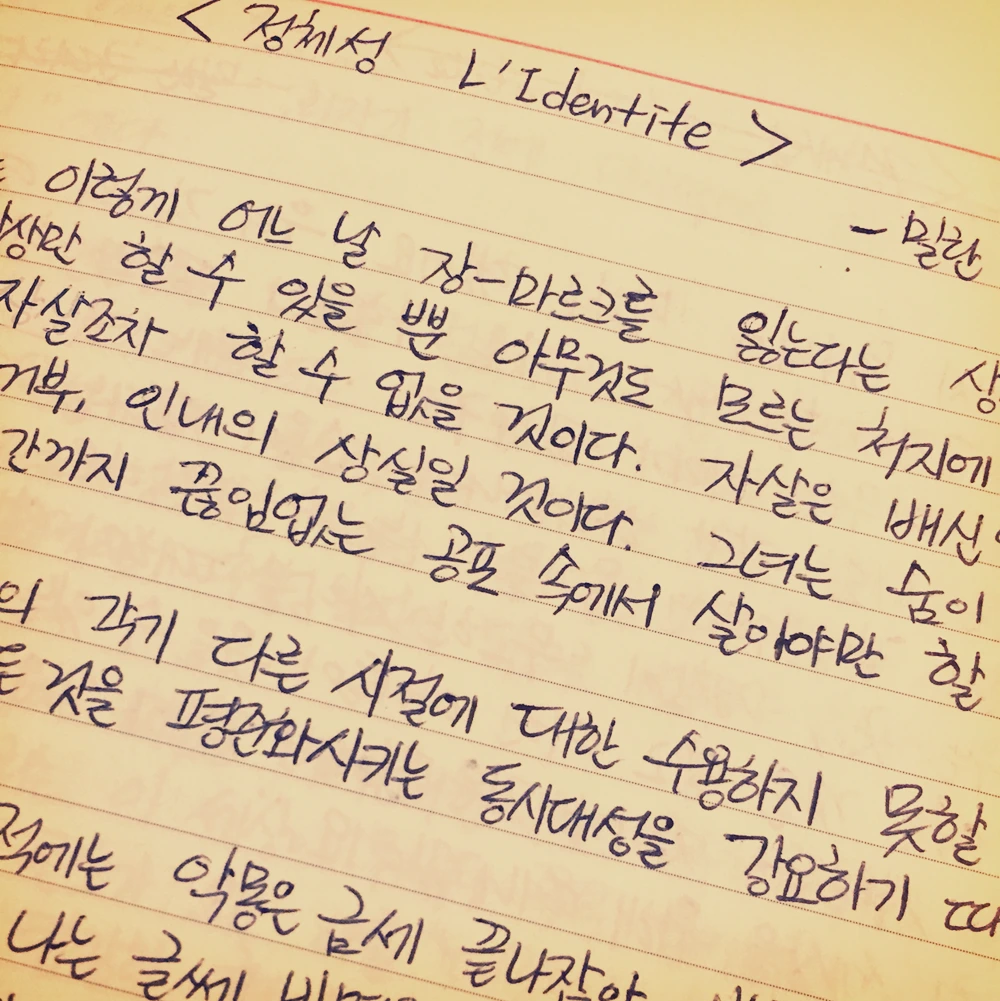 < 정체성 L'Identite >
- 밀란
이렇게 어느 날 장-마르크를 잃는다는 상
상상만 할 수 있을 뿐 아무것도 모르는 처지에
자살조차 할 수 없을 것이다. 자살은 배신
거부, 인내의 상실일 것이다. 그녀는 숨이
간까지 끊임없는 공포 속에서 살아야만 할
의 각기 다른 시절에 대한 수용하지 못할
것을 평준화시키는 동시대성을 강요하기 따
적에는 악몽은 금세 끝나잖아
나는 글쎄